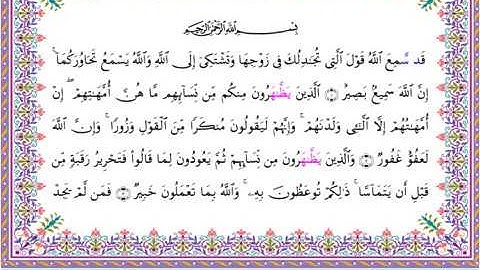 بِسْمِ ٱللَّهِ ٱلرَّحْمَٰنِ ٱلرَّحِيمِ
قَد سَّمِعَ ٱللَّهُ قَوْلَ ٱلَّتِى تُجَٰدِلُكَ فِى زَوْجِهَا وَتَشْتَكِىٓ إِلَى ٱللَّهِ وَٱللَّهُ يَسْمَعُ تَحَاوُرَكُمَآ ۚ
إِنَّ ٱللَّهَ سَمِيعٌۢ بَصِيرٌ ۝١ ٱلَّذِينَ يُظَٰهِرُونَ مِنكُم مِّن نِّسَآئِهِم مَّا هُنَّ أُمَّهَٰتِهِمْ ۖ إِنْ
أُمَّهَٰتُهُمْ إِلَّا ٱلَّٰٓـِٔى وَلَدْنَهُمْ ۚ وَإِنَّهُمْ لَيَقُولُونَ مُنكَرًا مِّنَ ٱلْقَوْلِ وَزُورًا ۚ وَإِنَّ ٱللَّهَ
لَعَفُوٌّ غَفُورٌ ۝٢ وَٱلَّذِينَ يُظَٰهِرُونَ مِن نِّسَآئِهِمْ ثُمَّ يَعُودُونَ لِمَا قَالُوا۟ فَتَحْرِيرُ رَقَبَةٍ مِّن
قَبْلِ أَن يَتَمَآسَّا ۚ ذَٰلِكُمْ تُوعَظُونَ بِهِۦ ۚ وَٱللَّهُ بِمَا تَعْمَلُونَ خَبِيرٌ ۝٣ فَمَن لَّمْ يَجِدْ